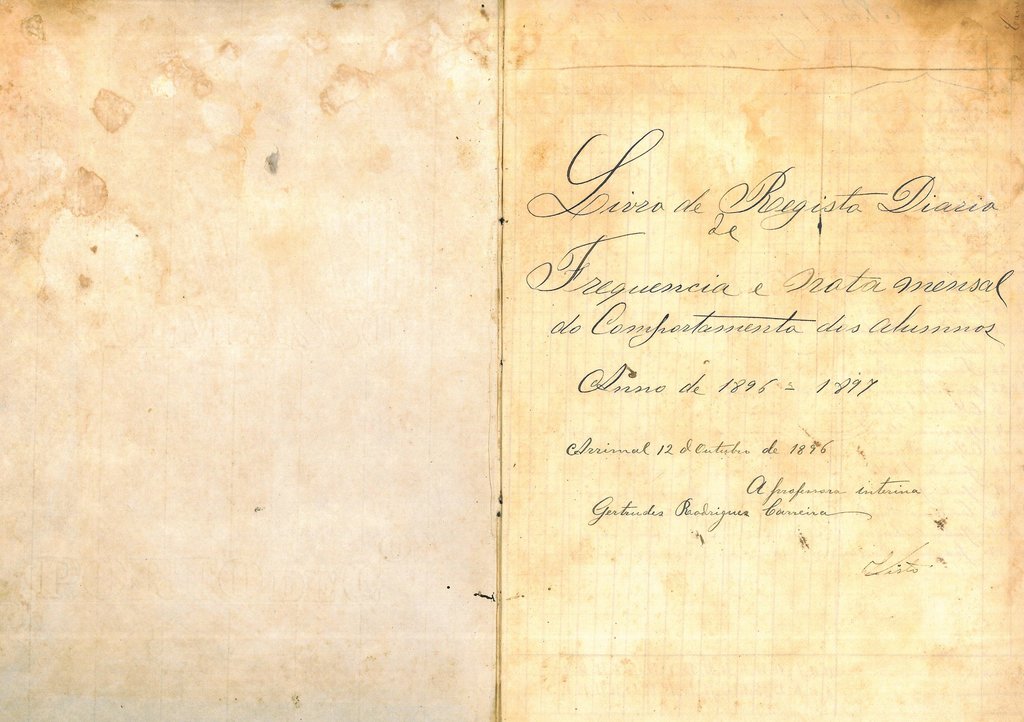 Livro de Registo Diario
de
Frequencia e nota mensal
do Comportamento dos alumnos
Anno de 1896 = 1897
Arrimal 12 d'Outubro de 1896
A professora interina
Gertrudes Rodrigues Carreira
Visto